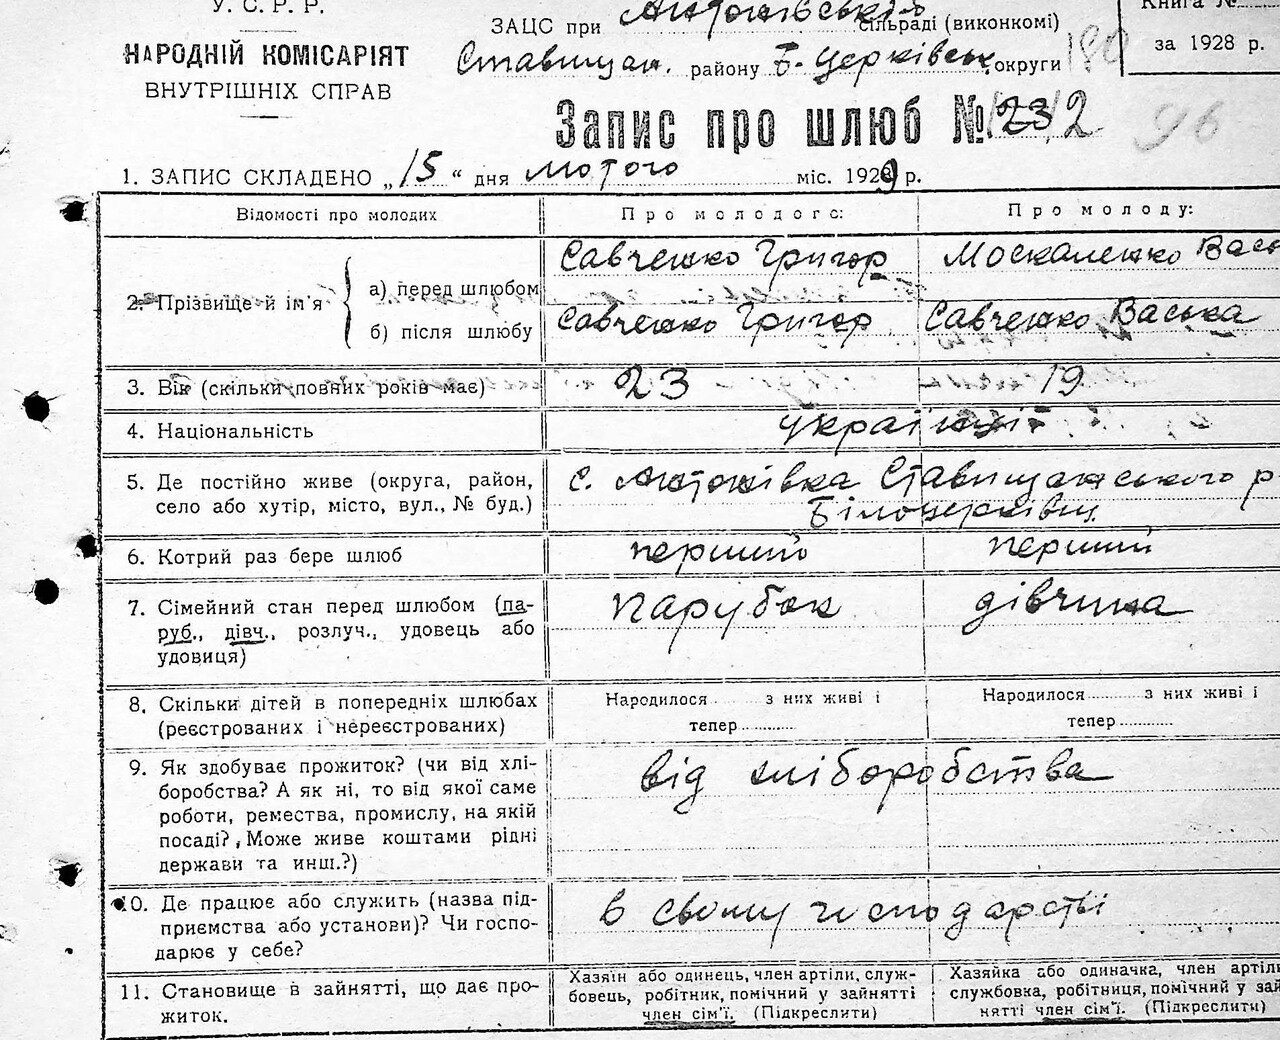 У. С. Р. Р.
НАРОДНІЙ КОМІСАРІЯТ
ВНУТРІШНІХ СПРАВ
ЗАЦС при Антонівській сільраді (виконкомі)
Ставищан. району Б-Церківськ. округи
180
Книга №
за 1928 р.
Запис про шлюб № 23 12
96
1. ЗАПИС СКЛАДЕНО „15“ дня лютого міс. 1929 р.
Відомості про молодих
Про молодого:
Про молоду:
2. Прізвище й ім'я
а) перед шлюбом
Савченко Григор
Москаленко Вась
б) після шлюбу
Савченко Григор
Савченко Васька
3. Вік (скільки повних років має)
23
19
4. Національність
українці
5. Де постійно живе (округа, район,
село або хутір, місто, вул., № буд.)
с. Антонівка Ставищанського р
Білоцерківщ.
6. Котрий раз бере шлюб
перший
перший
7. Сімейний стан перед шлюбом (па-
руб., дівч., розлуч., удовець або
удовиця)
парубок
дівчина
8. Скільки дітей в попередніх шлюбах
(реєстрованих і нереєстрованих)
Народилося з них живі і
тепер
Народилося з них живі і
тепер
9. Як здобуває прожиток? (чи від хлі-
боробства? А як ні, то від якої саме
роботи, ремества, промислу, на якій
посаді? Може живе коштами рідні
держави та инш.?)
від хліборобства
10. Де працює або служить (назва під-
приємства або установи)? Чи госпо-
дарює у себе?
в свому господарстві
11. Становище в зайнятті, що дає про-
житок.
Хазяїн або одинець, член артіли, служ-
бовець, робітник, помічний у зайнятті
член сім'ї. (Підкреслити)
Хазяйка або одиначка, член артіли
службовка, робітниця, помічний у зай
нятті член сім'ї. (Підкреслити)